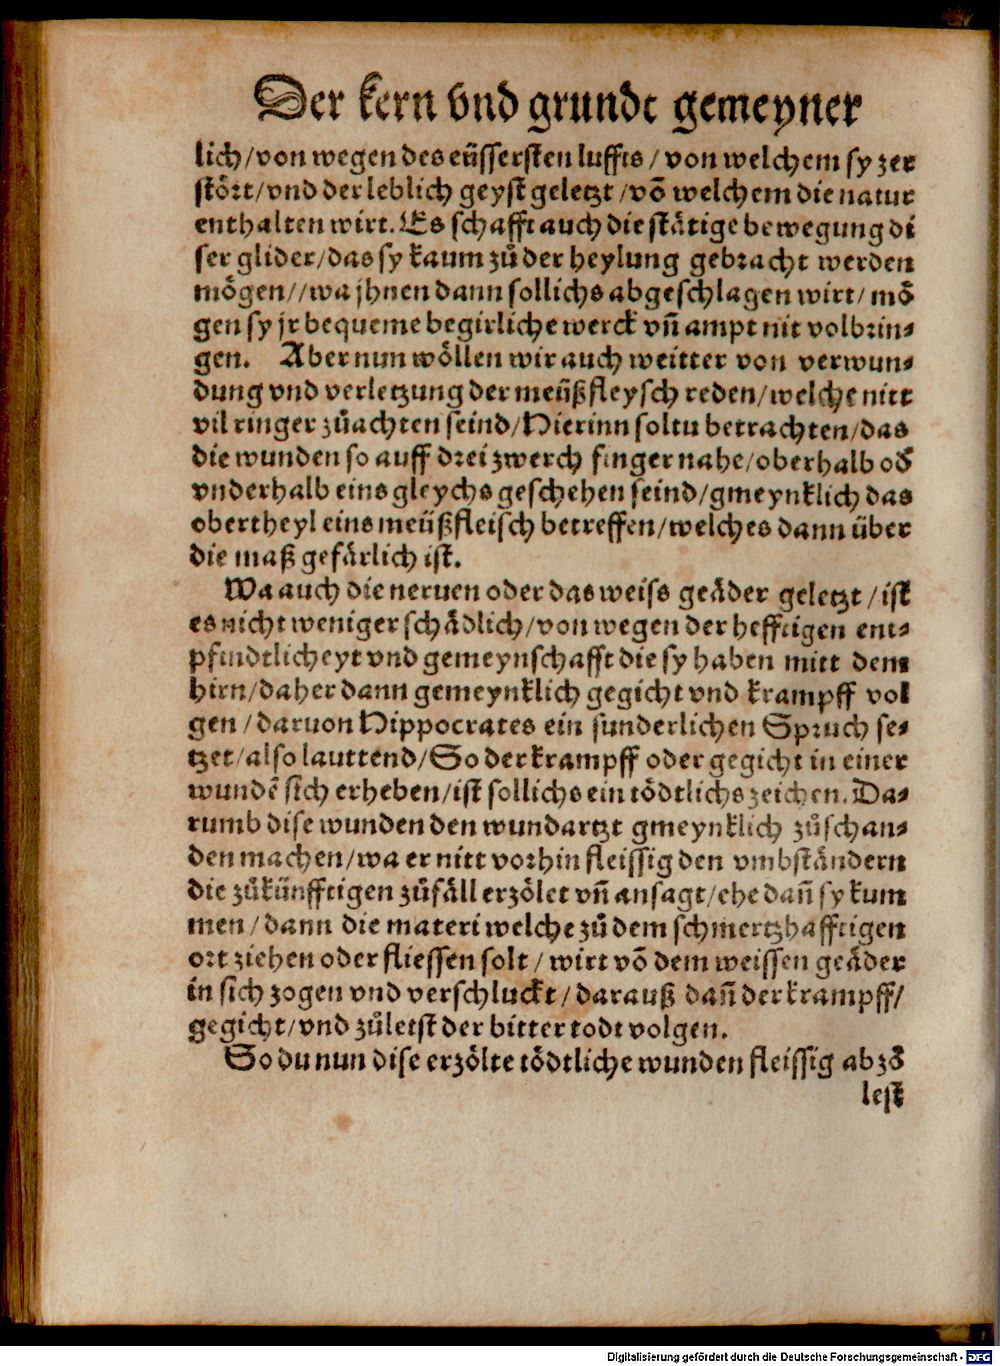 Der kern vnd grundt gemeyner
lich/von wegen des eüssersten luffts / von welchem sy zer
stört/vnd der leblich geyst geletzt /võ welchem die natur
enthalten wirt. Es schafft auch die stätige bewegung di
ser glider/das sy kaum zů der heylung gebracht werden
mögen//wa jhnen dann sollichs abgeschlagen wirt/ mö
gen sy jr bequeme begirliche werck vñ ampt nit volbrin⸗
gen. Aber nun wöllen wir auch weitter von verwun⸗
dung vnd verletzung der meüßfleysch reden/welche nitt
vil ringer zůachten seind/Hierinn soltu betrachten/das
die wunden so auff drei zwerch finger nahe/oberhalb od̕
vnderhalb eins gleychs geschehen seind/gmeynklich das
obertheyl eins meüßfleisch betreffen/welches dann über
die maß gefärlich ist.
Wa auch die neruen oder das weiss geäder geletzt /ist
es nicht weniger schädlich/von wegen der hefftigen ent⸗
pfindtlicheyt vnd gemeynschafft die sy haben mitt dem
hirn/daher dann gemeynklich gegicht vnd krampff vol
gen /daruon Hippocrates ein sunderlichen Spruch se⸗
tzet/also lauttend/So der krampff oder gegicht in einer
wundẽ sich erheben/ist sollichs ein tödtlichs zeichen. Da⸗
rumb dise wunden den wundartzt gmeynklich zůschan⸗
den machen/wa er nitt vorhin fleissig den vmbständern
die zůkünfftigen zůfäll erzölet vñ ansagt/ehe dañ sy kum
men /dann die materi welche zů dem schmertzhafftigen
ort ziehen oder fliessen solt / wirt võ dem weissen geäder
in sich zogen vnd verschluckt/darauß dañ der krampff/
gegicht/vnd zůletst der bitter todt volgen.
So du nun dise erzölte tödtliche wunden fleissig abzö
lest
Digitalisierung gefördert durch die Deutsche Forschungsgemeinschaft - DFG